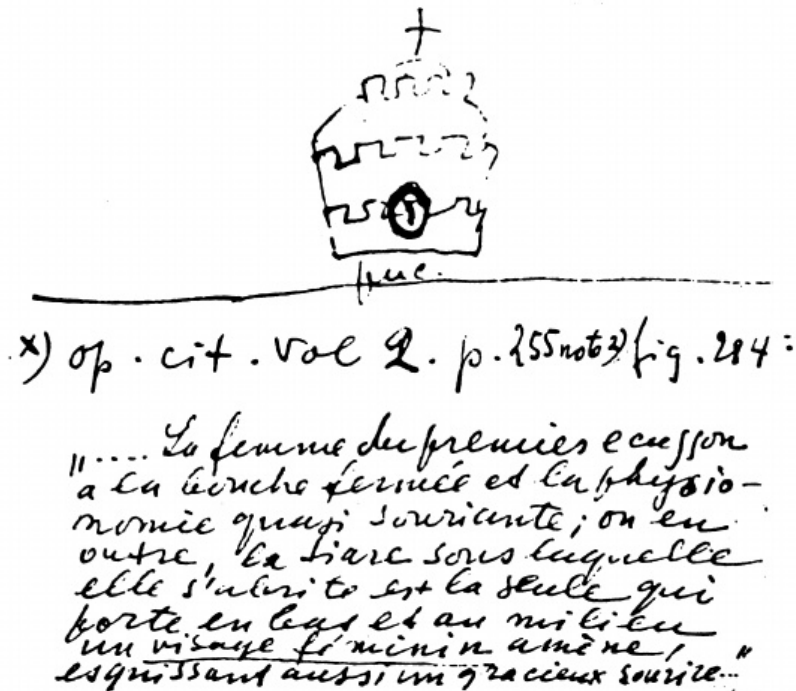 x) op. cit. Vol 2. p. 255 note 3) fig. 284:
".... La femme du premier ecusson
a la bouche fermée et la physio-
nomie quasi souriante; on en
outre, la tiare sous laquelle
elle s'abrite est la seule qui
porte en bas et au milieu
un visage féminin amène,
esquissant aussi un gracieux sourire..."